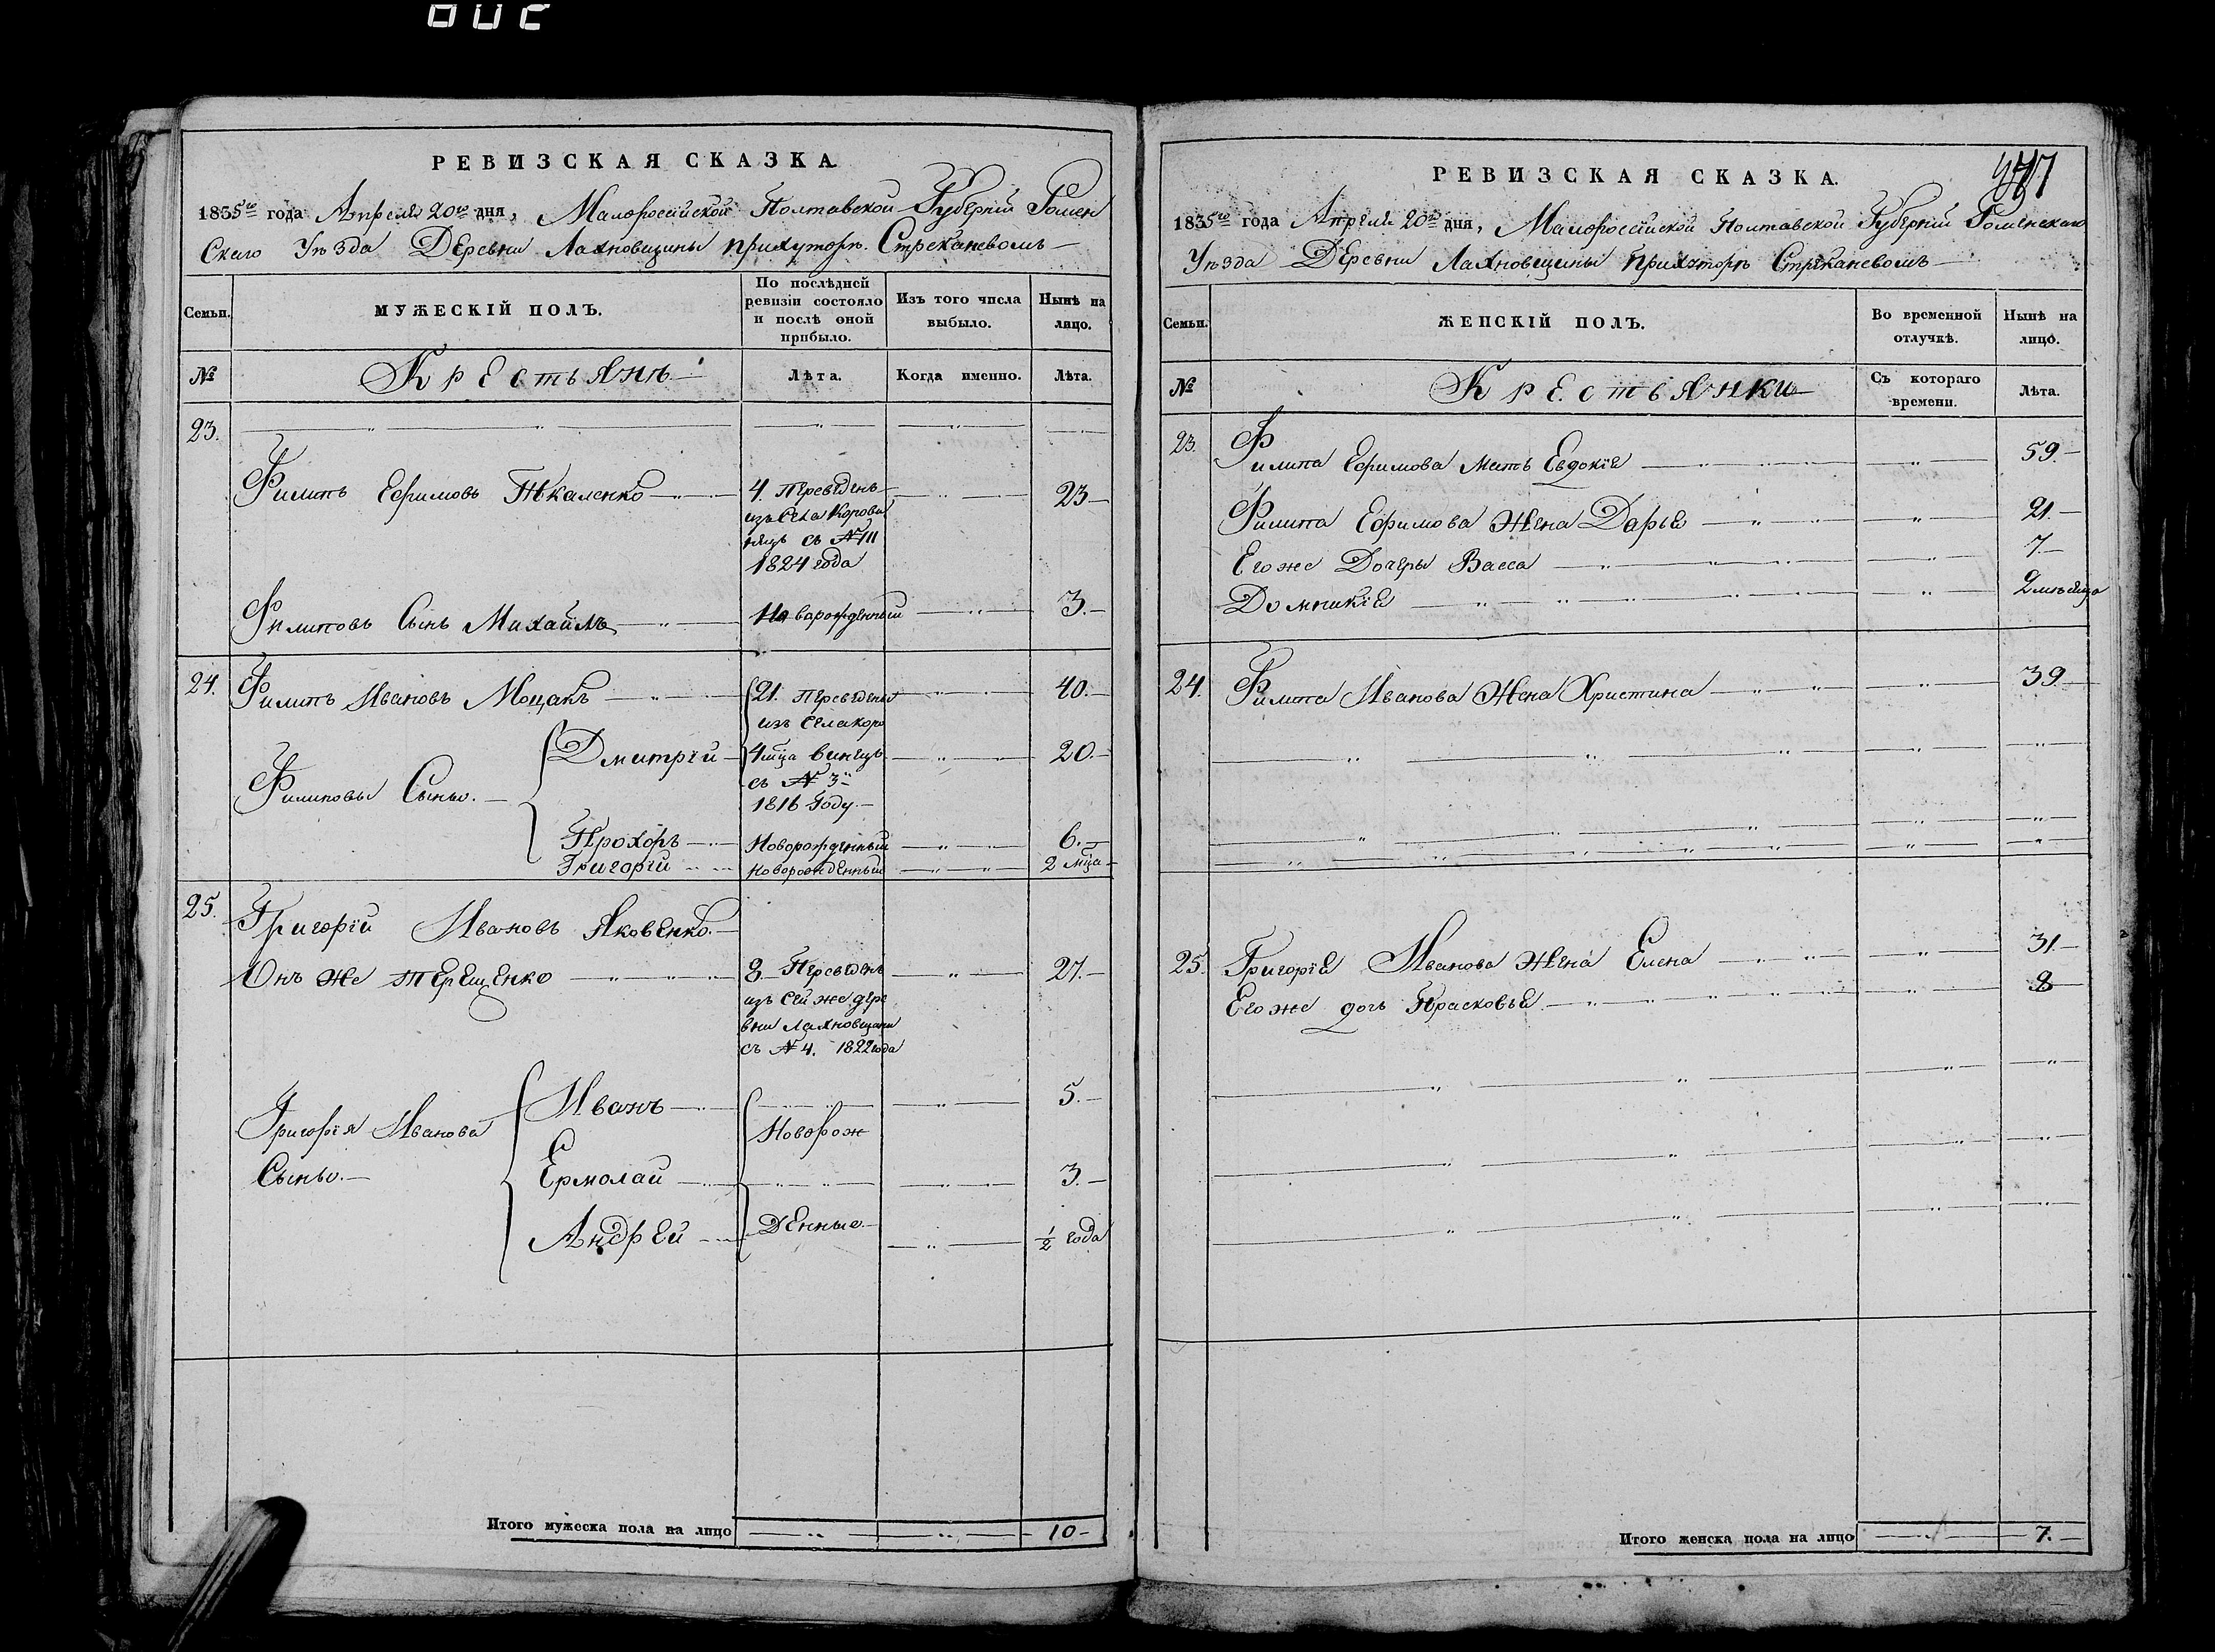 РЕВИЗСКАЯ СКАЗКА.
1835го года Апреля 20го дня, Малоросiйской Полтавской Губернiй Ромен
Скаго Уезда Деревни Лахновщины прихуторе Стреканевомъ
Семьи. МУЖЕСКIЙ ПОЛЪ. По послѣдней ревизiи состояло и послѣ оной прибыло. Изъ того числа выбыло. Нынѣ на лицо.
№ Крестьянъ Лѣта. Когда именно. Лѣта.
23.
Филипъ Ефимовъ Ткаленко 4. Переведенъ 23
изъ Села Корови
нецъ съ №111
1824 года
Филиповъ Сынъ Михайлъ Новарожденный 3.
24. Филипъ Ивановъ Моцакъ 21. Переведены 40.
изъ Села Коро
Филиповы Сыны. Дмитрiй 4 мца винецъ 20.
съ № 3
1816 Году.
Прохоръ Новорожденный 6.
Григорiй новорожденный 2 мца
25. Григорiй Ивановъ Яковенко.
Онъ же терещенко 8 Переведенъ 27.
изъ сей же дере
вни Лахновщины
съ № 4. 1822 года
Григорiя Иванова Иванъ Новорож 5.
Сыны. Ермолай 3.
Андрей Денные ½ года
Итого мужеска пола на лицо 10
РЕВИЗСКАЯ СКАЗКА.
1835го года Апреля 20го дня, Малоросciйской Полтавской Губернiй Роменскаго
Уезда Деревни Лахновщины прихуторе Стреканевомъ
Семьи. ЖЕНСКIЙ ПОЛЪ. Во временной отлучкѣ. Нынѣ на лицо.
№ Крестьянки Съ котораго времени. Лѣта.
23. Филипа Ефимова Мать Евдокiя 59.
Филипа Ефимова Жена Дарья 21.
Его же Дочеры Васса 7.
Домникiя 2 месяца
24. Филипа Иванова Жена Христина 39
25. Григорiя Иванова Жена Елена 31.
Его же дочь Прасковья 8
Итого женска пола на лицо 7.